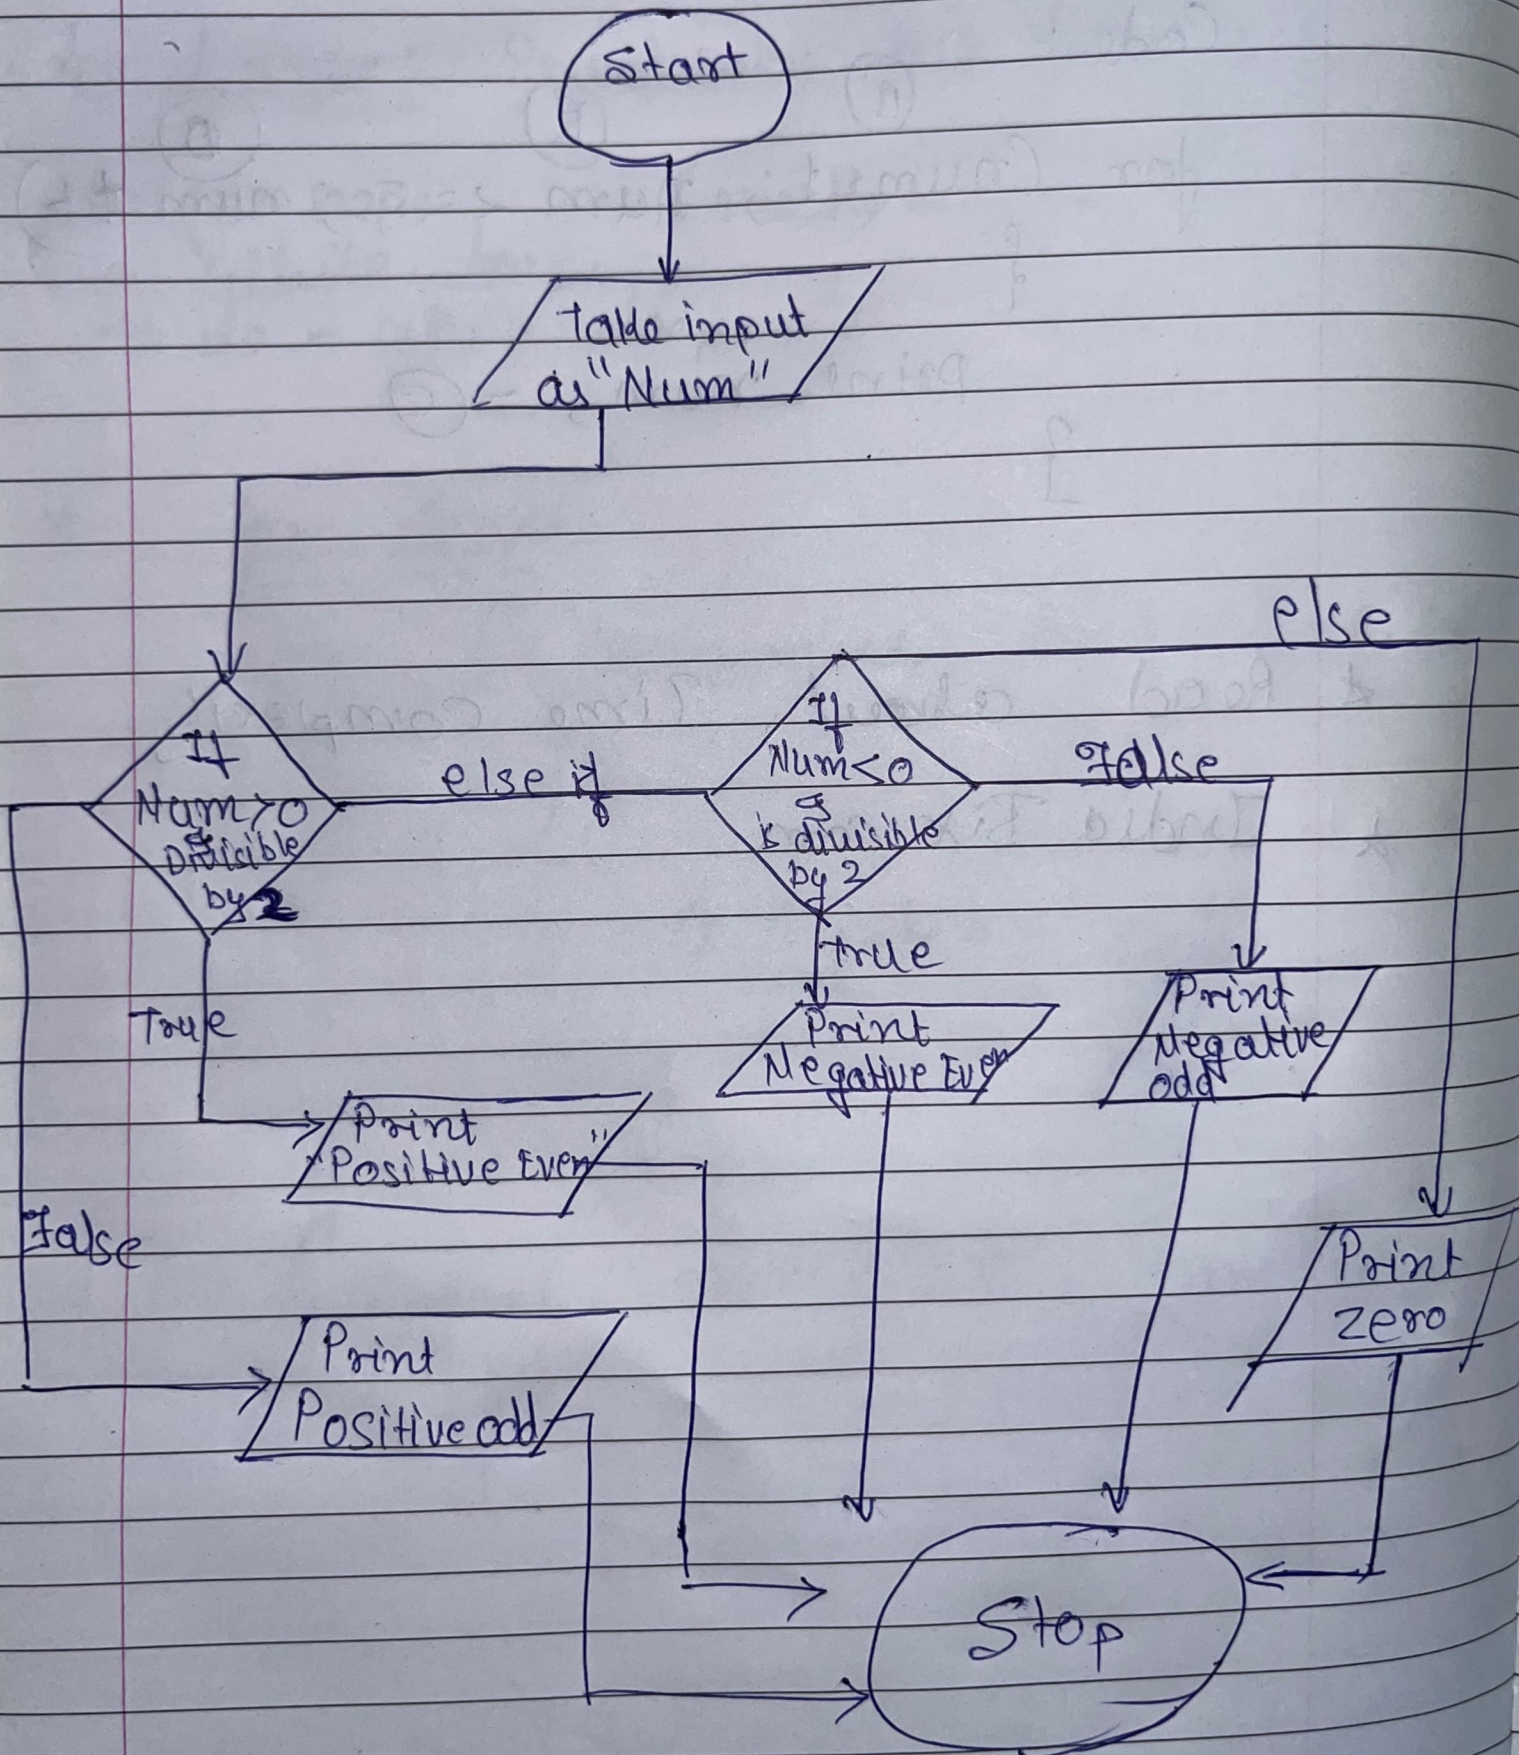 Start
Take input
as "Num"
else
If
Num>0
&
Divisible
by 2
else if
If
Num<0
&
is divisible
by 2
False
True
True
Print
Negative Even
Print
Negative
odd
Print
"Positive Even"
False
Print
zero
Print
Positive odd
Stop